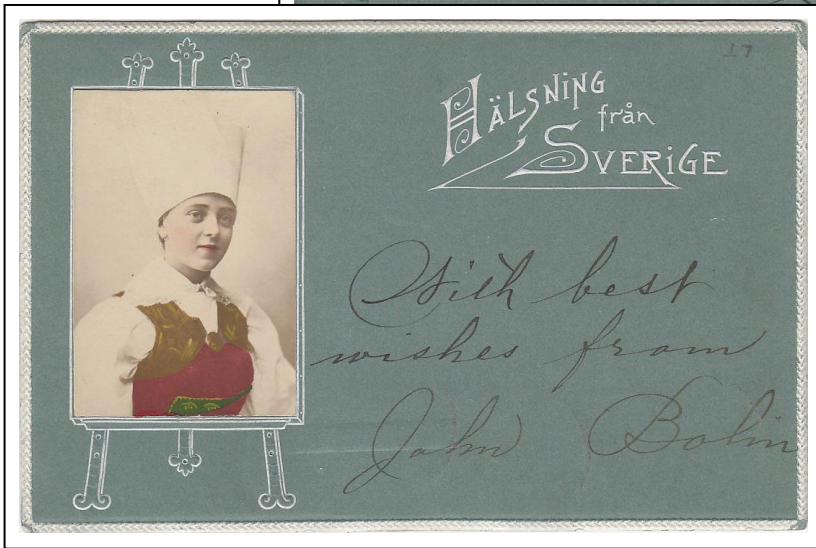 17
HÄLSNING
från
SVERIGE
With best
wishes from
John Bolin